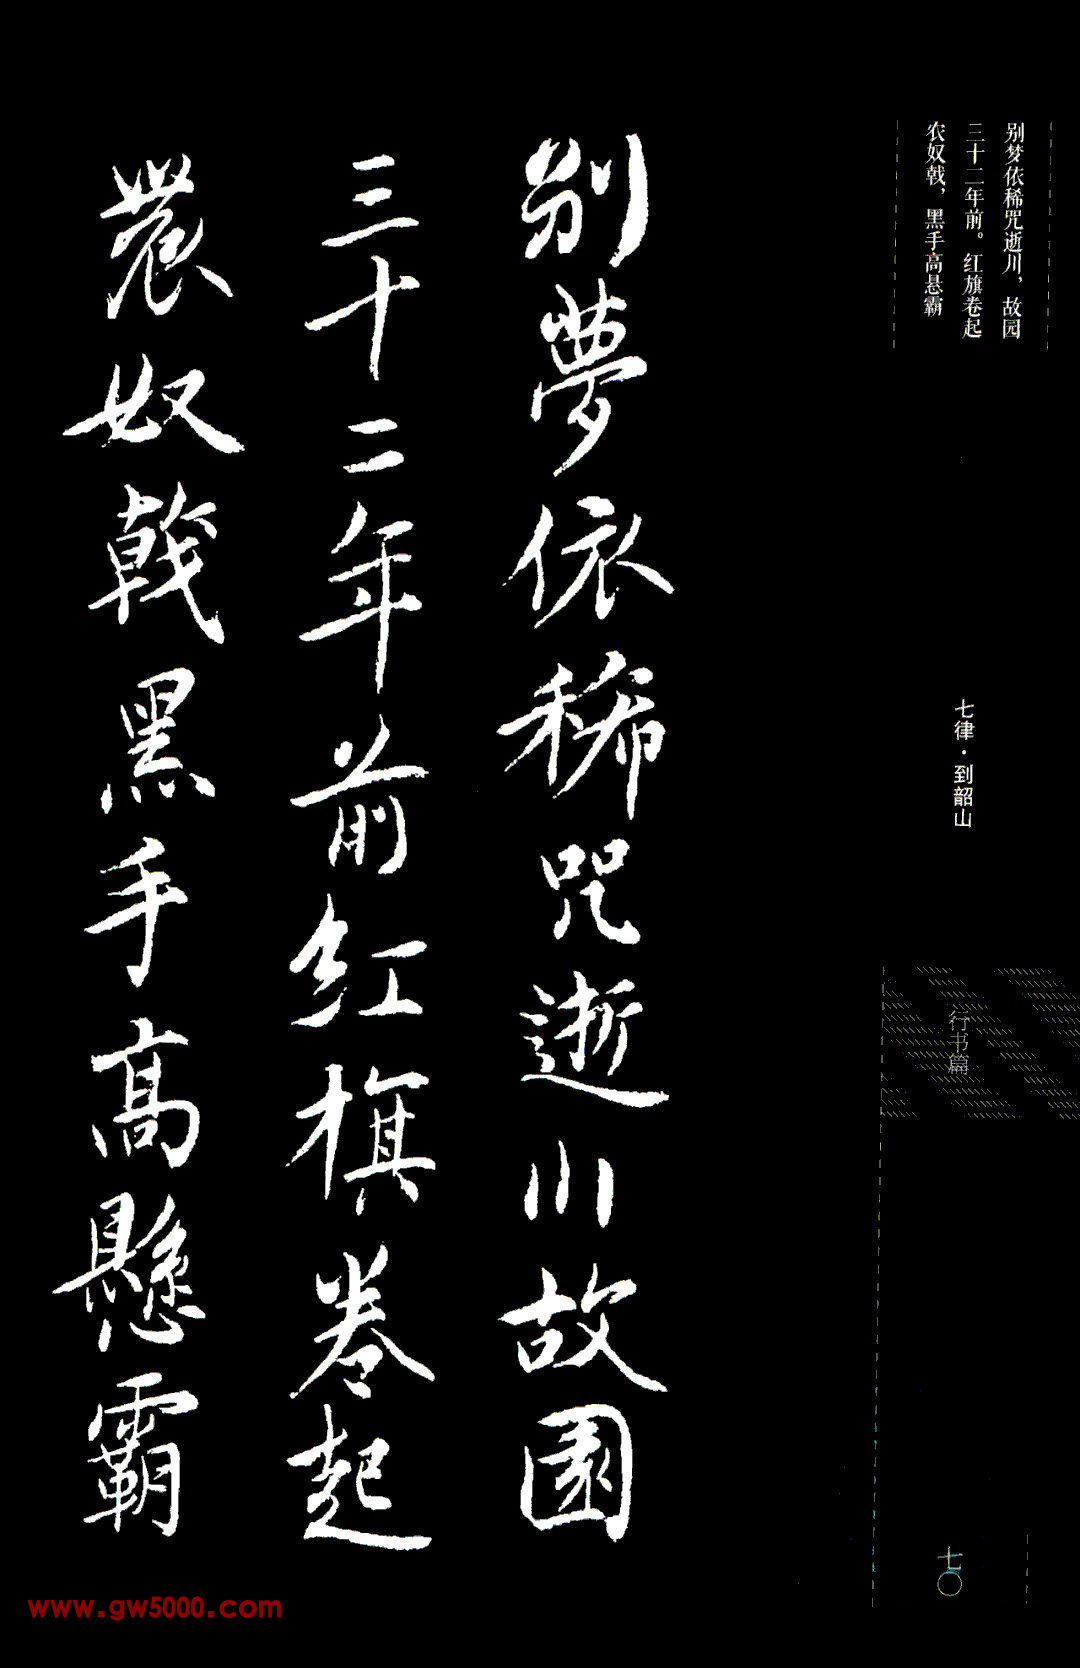 别梦依稀咒逝川，故园
三十二年前。红旗卷起
农奴戟，黑手高悬霸
七律·到韶山
行书篇
七〇
别夢依稀咒逝川故園
三十二年前红旗卷起
農奴戟黑手高懸霸
www.gw5000.com